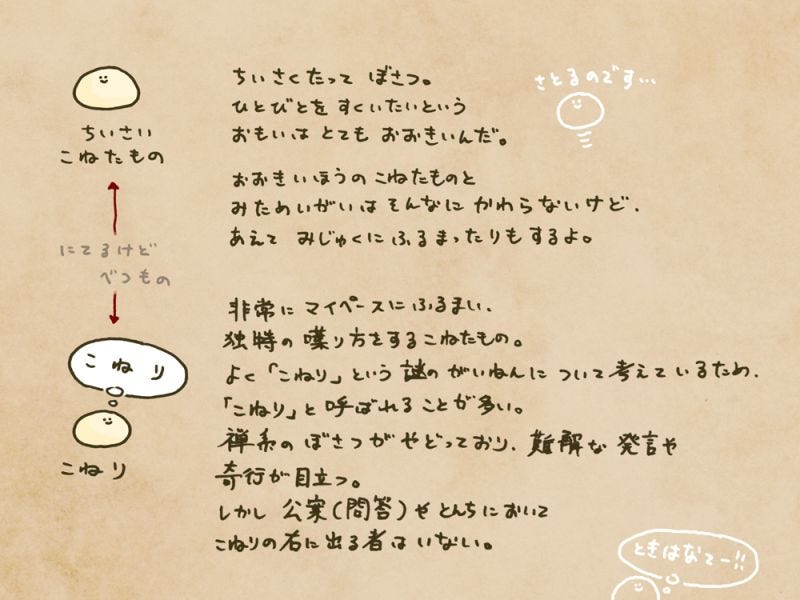 ちいさい
こねたもの
ちいさくたって ぼさつ。
ひとびとを すくいたいという
おもいは とても おおきいんだ。
さとるのです…
おおきいほうの こねたものと
みためいがいは そんなに かわらないけど、
あえて みじゅくに ふるまったりもするよ。
にてるけど
べつもの
こねり
こねり
非常に マイペースに ふるまい、
独特の 喋り方をする こねたもの。
よく「こねり」という 謎の がいねんに ついて 考えているため、
「こねり」と 呼ばれることが多い。
禅系の ぼさつが やどっており、難解な 発言や
奇行が目立つ。
しかし 公案(問答)や とんちにおいて
こねりの右に出る者は いない。
ときはなてー!!